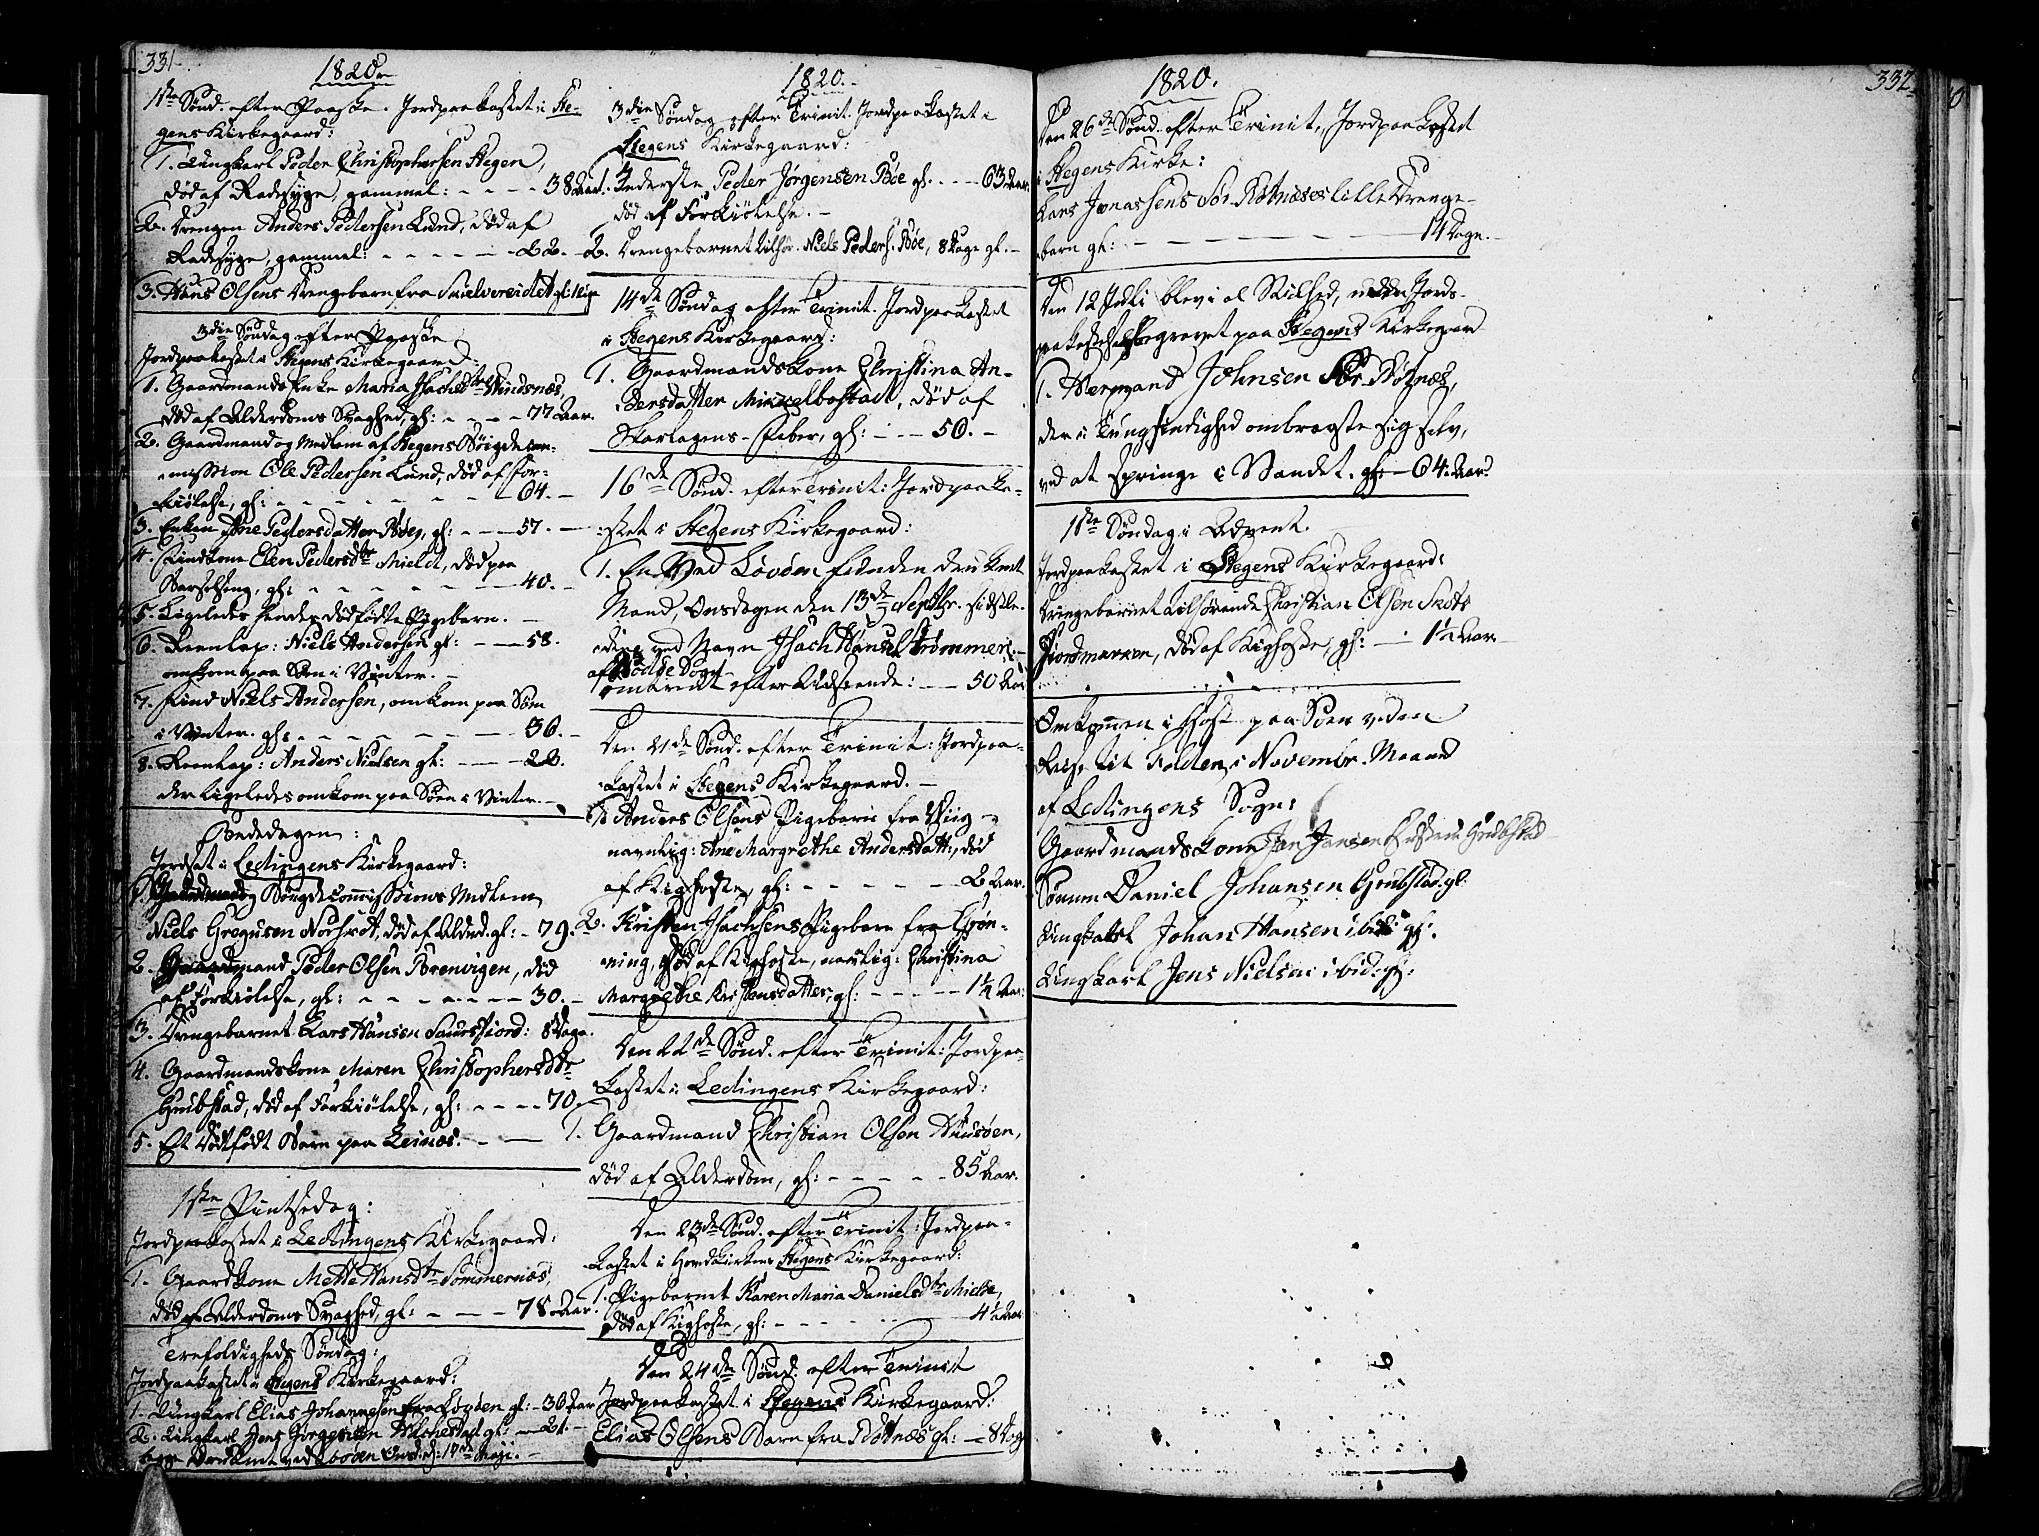 331
1820
1ste Sønd. efter Paaske. Jordpaakastet i Ste-
gens Kirkegaard:
1. Ungkarl Peder Christophersen Stegen,
død af Radesyge, gammel: - - - - 38 Aar.
2. Drengen Anders Pedersen Lund, død af
Radesyge, gammel: - - - - - 22. -
3. Hans Olsens Drengebarn fra
3die Søndag efter Paaske
Jordpaakastet i Stegens Kirkegaard.
1. Gaardmands Enke Maria Isachsdtr Vindnæs,
død af Alderdoms Svaghed, gl: - - - 77 Aar.
2. Gaardmand og Medlem af Stegens
mission Ole Pedersen Lund, død af For-
kiølelse, gl: - - - - - - 64. -
3. Enken Ane Pedersdatter Bøe, gl: - - - 57. -
4. Findkone Elen Pedersdtr Mield, død paa
Barselseng, gl: - - - - - - 40. -
5. Ligeledes hendes dødfødte Pigebarn. -
6. Reenlap: Niels Andersen gl: - - - 58.
omkom paa Søen i Vinter. -
7. Find Niels Andersen, omkom paa Søen
i Vinter. gl: - - - - - - 36. -
8. Reenlap: Anders Nielsen gl: - - - 28.
der ligeledes omkom paa Søen i Vinter. -
Bededagen:
Jordet i Ledingens Kirkegaard:
1. Gaardmand og Medlem
Niels Gregusen død af Alderd. gl: - 79.
2. Gaardmand Peder Olsen Borenvigen, død
af Forkiølelse, gl: - - - - - 30. -
3. Drengebarnet Lars Hansen Sauosfiord: 8 Dage.
4. Gaardmandskone Maren Christophersdtr
Grubstad, død af Forkiølelse, gl: - - - - 70.
5. Et dødfødt Barn paa Leinæs. -
1ste Pintsedag:
Jordpaakastet i Ledingens Kirkegaard:
1. Gaardkone Mette Hansdtr Sommernæs,
død af Alderdoms Svaghed, gl: - - - 78 Aar.
Trefoldigheds Søndag:
Jordpaakastet i Stegens Kirkegaard:
1. Ungkarl Elias Johannesen fra Løvøen gl: - 36 Aar
2. Ungkarl Jens Jørgensen gl: - 21. -
1820.
3die Søndag efter Trinit. Jordpaakastet i
Stegens Kirkegaard:
1. Inderste Peder Jørgensen Bøe gl. - - - 63 Aar.
død af Forkiølelse. -
2. Drengebarnet tilhør. Niels Peders. Bøe, 8 Dage gl. -
14de Søndag efter Trinit. Jordpaakastet
i Stegens Kirkegaard:
1. Gaardmandskone Christina An-
dersdatter Mikkelbostad, død af
Skarlagens-Feber, gl: - - - 50. -
16de Sønd. efter Trinit: Jordpaaka-
stet i Stegens Kirkegaard:
1. En ved Løvøen funden druknet
Mand, Onsdagen den 13de Septbr. sidstle-
den, ved Navn Isach Hansen
af Sogn
omtrent efter Udseende: - - 50 Aar
Den 21de Sønd. efter Trinit: Jordpaa-
kastet i Stegens Kirkegaard. -
1. Anders Olsens Pigebarn fra Viig -
navnlig: Ane Margrethe Andersdatt:, død
af Kighoste, gl: - - - - - - 2 Aar.
2. Kristen Isachsens Pigebarn fra Grøn-
ning, død af Kighoste, navnlig: Christina
Margrethe Kristensdatter, gl: - - - - 1 1/4 Aar:
Den 22de Sønd. efter Trinit: Jordpaa-
kastet i Ledingens Kirkegaard:
1. Gaardmand Christian Olsen Huusøen,
død af Alderdom, gl: - - - - - 85 Aar.
Den 23de Sønd. efter Trinit: Jordpaa-
kastet i Hovedkirken Stegens Kirkegaard:
1. Pigebarnet Karen Maria Danielsdtr Mielde,
død af Kighoste, gl: - - - - 4 1/2 Aar
Den 24de Sønd. efter Trinit
Jordpaakastet i Stegens Kirkegaard:
Elias Olsens Barn fra Rotnæs gl: - 8 Dage
332
1820.
Den 26de Sønd. efter Trinit., Jordpaakastet
i Stegens Kirke:
Lars Jonassens Sør Rotnæs lille Drenge-
barn gl: - - - - - - 14 Dage.
Den 12 Juli blev i al Stilhed, uden Jords-
paakastelse begravet paa Stegens Kirkegaard
1. Hermand Johnsen Sør Rotnæs,
der i Tungsindighed ombragte sig selv,
ved at springe i Vandet. gl: - 64 Aar.
1ste Søndag i Advent.
Jordpaakastet i Stegens Kirkegaard:
Drengebarnet tilhørende Christian Olsen Skots
Fiordmarken, død af Kighoste, gl: - - 1 1/2 Aar
Omkommen i Høst paa Søen veden
Reise til Folden, i Novembr. Maaned
af Ledingens Sogn:
Gaardmandskone Jan Jansen Grubstad
Sønnen Daniel Johansen Grubstad. gl.
Ungkarl Johan Hansen ibid: gl:
Ungkarl Jens Nielsen ibid: gl: